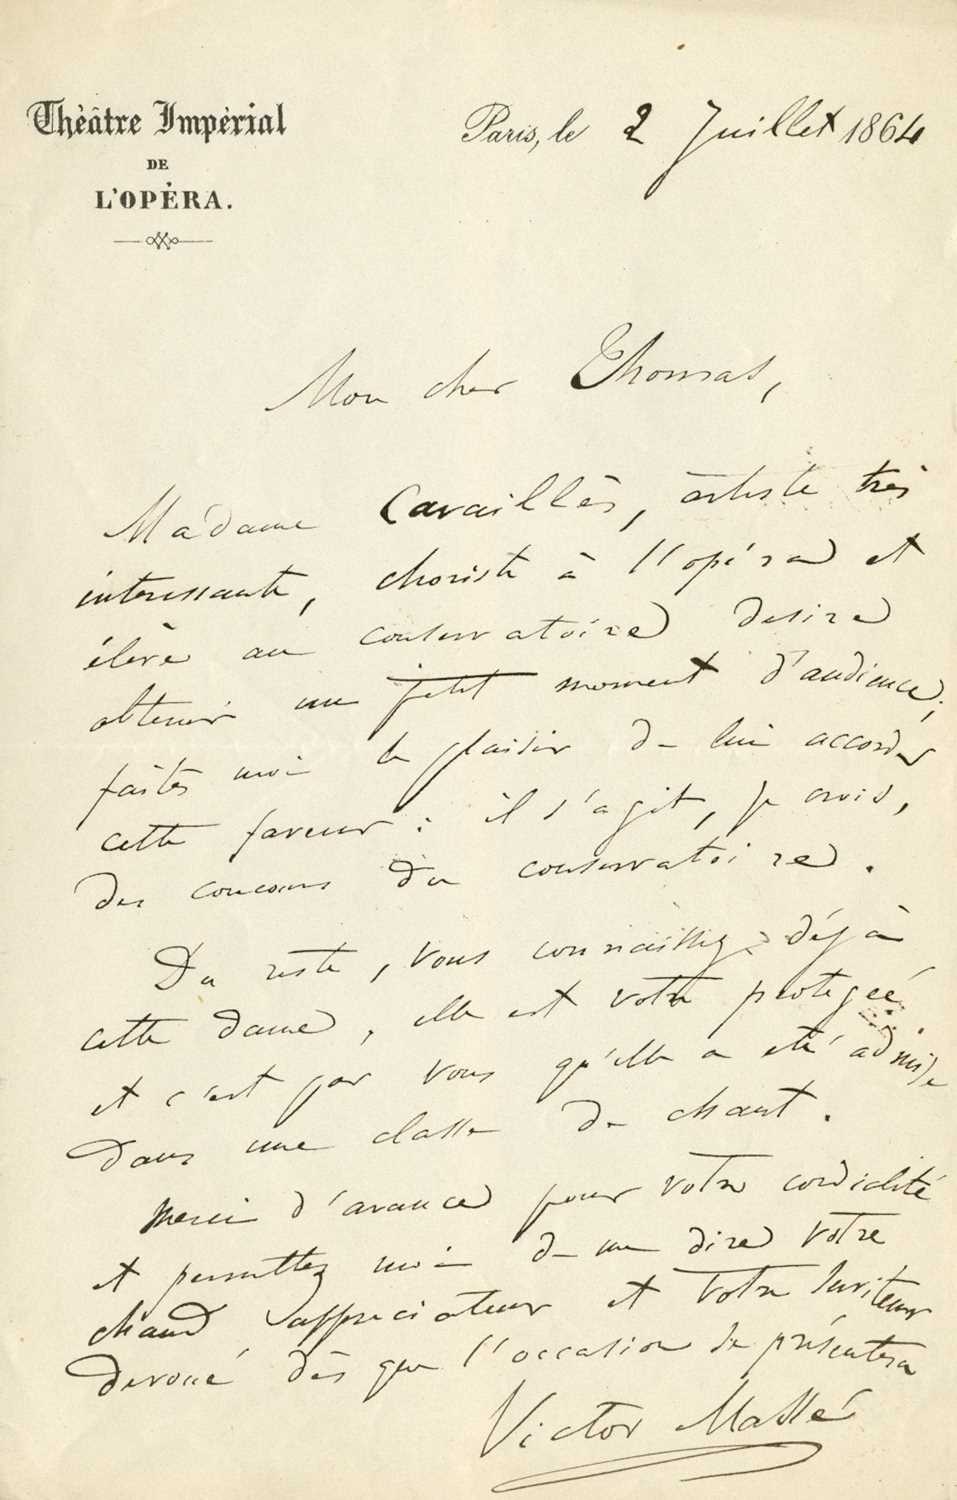 Théâtre Impérial
DE
L'OPÉRA.
Paris, le 2 Juillet 1864
Mon cher Thomas,
Madame Cavaillès, artiste très
intéressante, choriste à l'opéra et
élève au conservatoire desire
obtenir un petit moment d'audience;
faites moi le plaisir de lui accorder
cette faveur : il s'agit, je crois,
des concours du conservatoire.
Du reste, vous connaissez déjà
cette dame, elle est votre protégée
et c'est par vous qu'elle a été admise
dans une classe de chant.
Merci d'avance pour votre cordialité
et permettez moi de me dire votre
chaud appreciateur et votre
devoué dès que l'occasion se présentera
Victor Massé